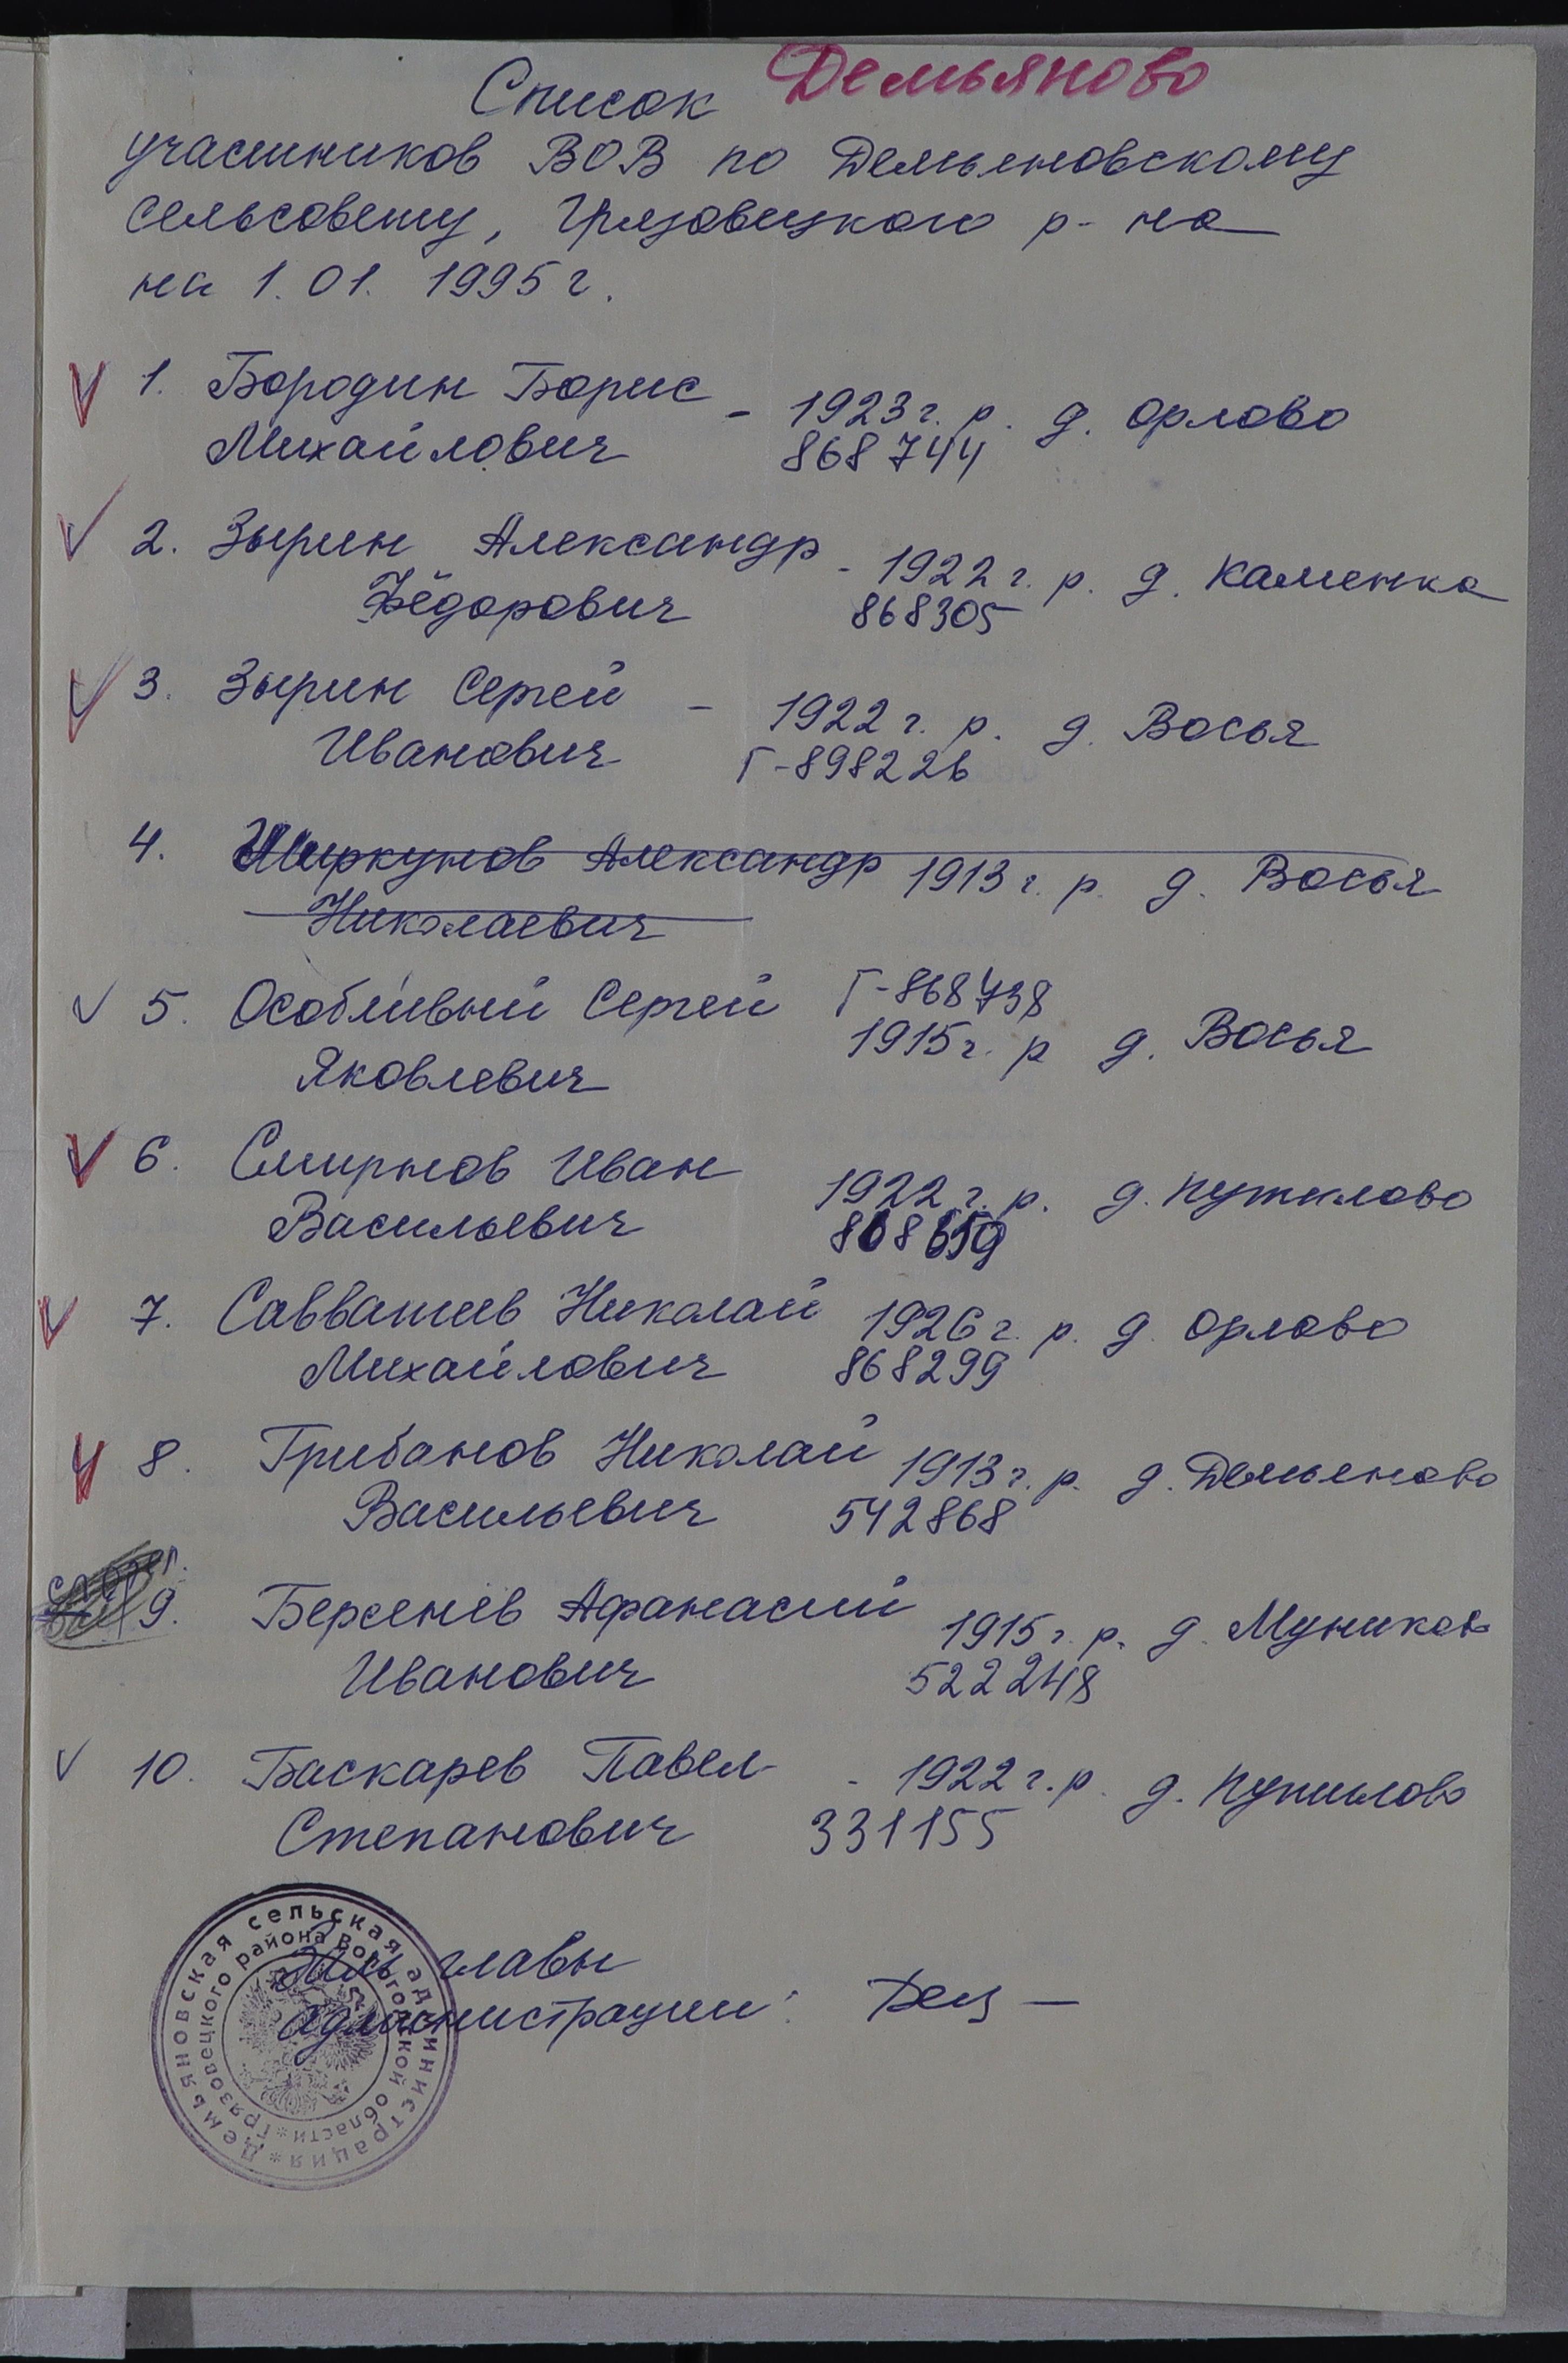 Демьяново
Список
участников ВОВ по Демьяновскому
сельсовету, Грязовецкого р-на
на 1.01.1995 г.
1. Бородин Борис - 1923 г. р. д. Орлово
Михайлович 868744
2. Зырин Александр - 1922 г. р. д. Каменка
Фёдорович 868305
3. Зырин Сергей - 1922 г. р. д. Восья
Иванович Г-898226
4. Ширкунов Александр 1913 г. р. д. Восья
Николаевич
5. Особливый Сергей Г-868738
1915 г. р д. Восья
Яковлевич
6. Смирнов Иван 1922 г. р. д. Путилово
Васильевич 868659
7. Савватеев Николай 1926 г. р. д. Орлово
Михайлович 868299
8. Грибанов Николай 1913 г. р. д. Демьяново
Васильевич 542868
9. Берсенёв Афанасий 1915 г. р. д. Муников
Иванович 522248
10. Баскарев Павел - 1922 г. р. д. Путилово
Степанович 331155
главы
администрации:
Демьяновская сельская администрация
Грязовецкого района Вологодской области